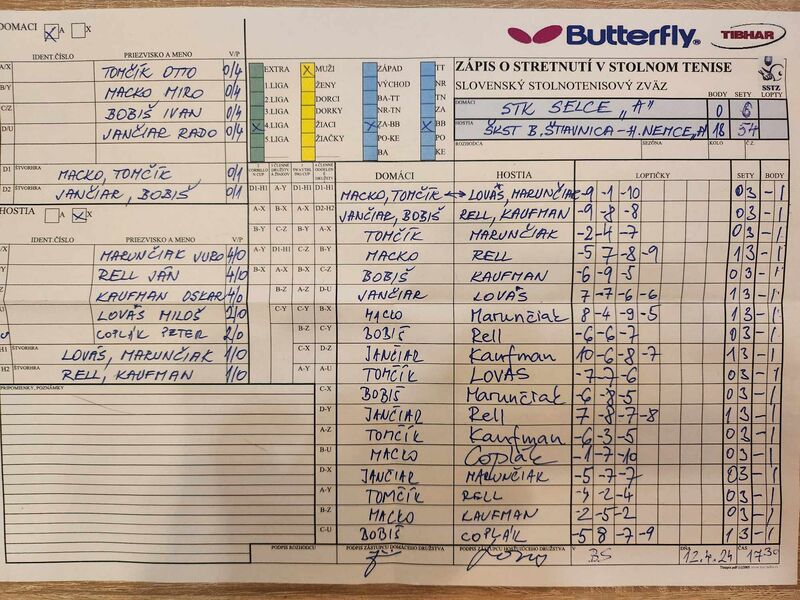 DOMACI A X
Butterfly® TIBHAR
IDENT.ČÍSLO PRIEZVISKO A MENO V/P
A/X TOMČÍK OTTO 0/4
B/Y MACKO MIRO 0/4
C/Z BOBIŠ IVAN 0/4
D/U JANČIAR RADO 0/4
D1 ŠTVORHRA MACKO, TOMČÍK 0/1
D2 ŠTVORHRA JANČIAR, BOBIŠ 0/1
HOSTIA A X
IDENT.ČÍSLO PRIEZVISKO A MENO V/P
MARUNČIAK JURO 4/0
RELL JÁN 4/0
KAUFMAN OSKAR 4/0
LOVÁŠ MILOŠ 2/0
COPLÁK PETER 2/0
H1 ŠTVORHRA LOVÁŠ, MARUNČIAK 1/0
H2 ŠTVORHRA RELL, KAUFMAN 1/0
PRIPOMIENKY, POZNÁMKY
EXTRA X MUŽI ZÁPAD TT
1.LIGA ŽENY VÝCHOD NR
2.LIGA DORCI BA-TT TN
3.LIGA DORKY NR-TN ZA
X 4.LIGA ŽIACI X ZA-BB X BB
5.LIGA ŽIAČKY PO-KE PO
BA KE
ZÁPIS O STRETNUTÍ V STOLNOM TENISE
SLOVENSKÝ STOLNOTENISOVÝ ZVÄZ
SSTZ
BODY SETY LOPTY
DOMÁCI STK SELCE „A" 0 6
HOSTIA ŠKST B. ŠTIAVNICA - H. NEMCE „A" 18 54
ROZHODCA SEZÓNA KOLO Č.Z.
DOMÁCI HOSTIA LOPTIČKY SETY BODY
MACKO, TOMČÍK ↔ LOVÁŠ, MARUNČIAK -9 -1 -10 03 -1
JANČIAR, BOBIŠ RELL, KAUFMAN -9 -8 -8 03 -1
TOMČÍK MARUNČIAK -2 -4 -7 03 -1
MACKO RELL -5 7 -8 -9 13 -1
BOBIŠ KAUFMAN -6 -9 -5 03 -1
JANČIAR LOVÁŠ 7 -7 -6 -6 13 -1
MACKO Marunčiak 8 -4 -9 -5 13 -1
BOBIŠ Rell -6 -6 -7 03 -1
JANČIAR Kaufman 10 -6 -8 -7 13 -1
TOMČÍK LOVÁŠ -7 -7 -6 03 -1
BOBIŠ Marunčiak -6 -8 -5 03 -1
JANČIAR Rell 7 -8 -7 -8 13 -1
TOMČÍK Kaufman -6 -3 -5 03 -1
MACKO Coplák -1 -7 -10 03 -1
JANČIAR MARUNČIAK -5 -7 -7 03 -1
TOMČÍK RELL -4 -2 -4 03 -1
MACKO KAUFMAN -2 -5 -2 03 -1
BOBIŠ COPLÁK -5 8 -7 -9 13 -1
PODPIS ROZHODCU PODPIS ZÁSTUPCU DOMÁCEHO DRUŽSTVA PODPIS ZÁSTUPCU HOSŤUJÚCEHO DRUŽSTVA V BS DŇA 12.4.24 ČAS 17:30